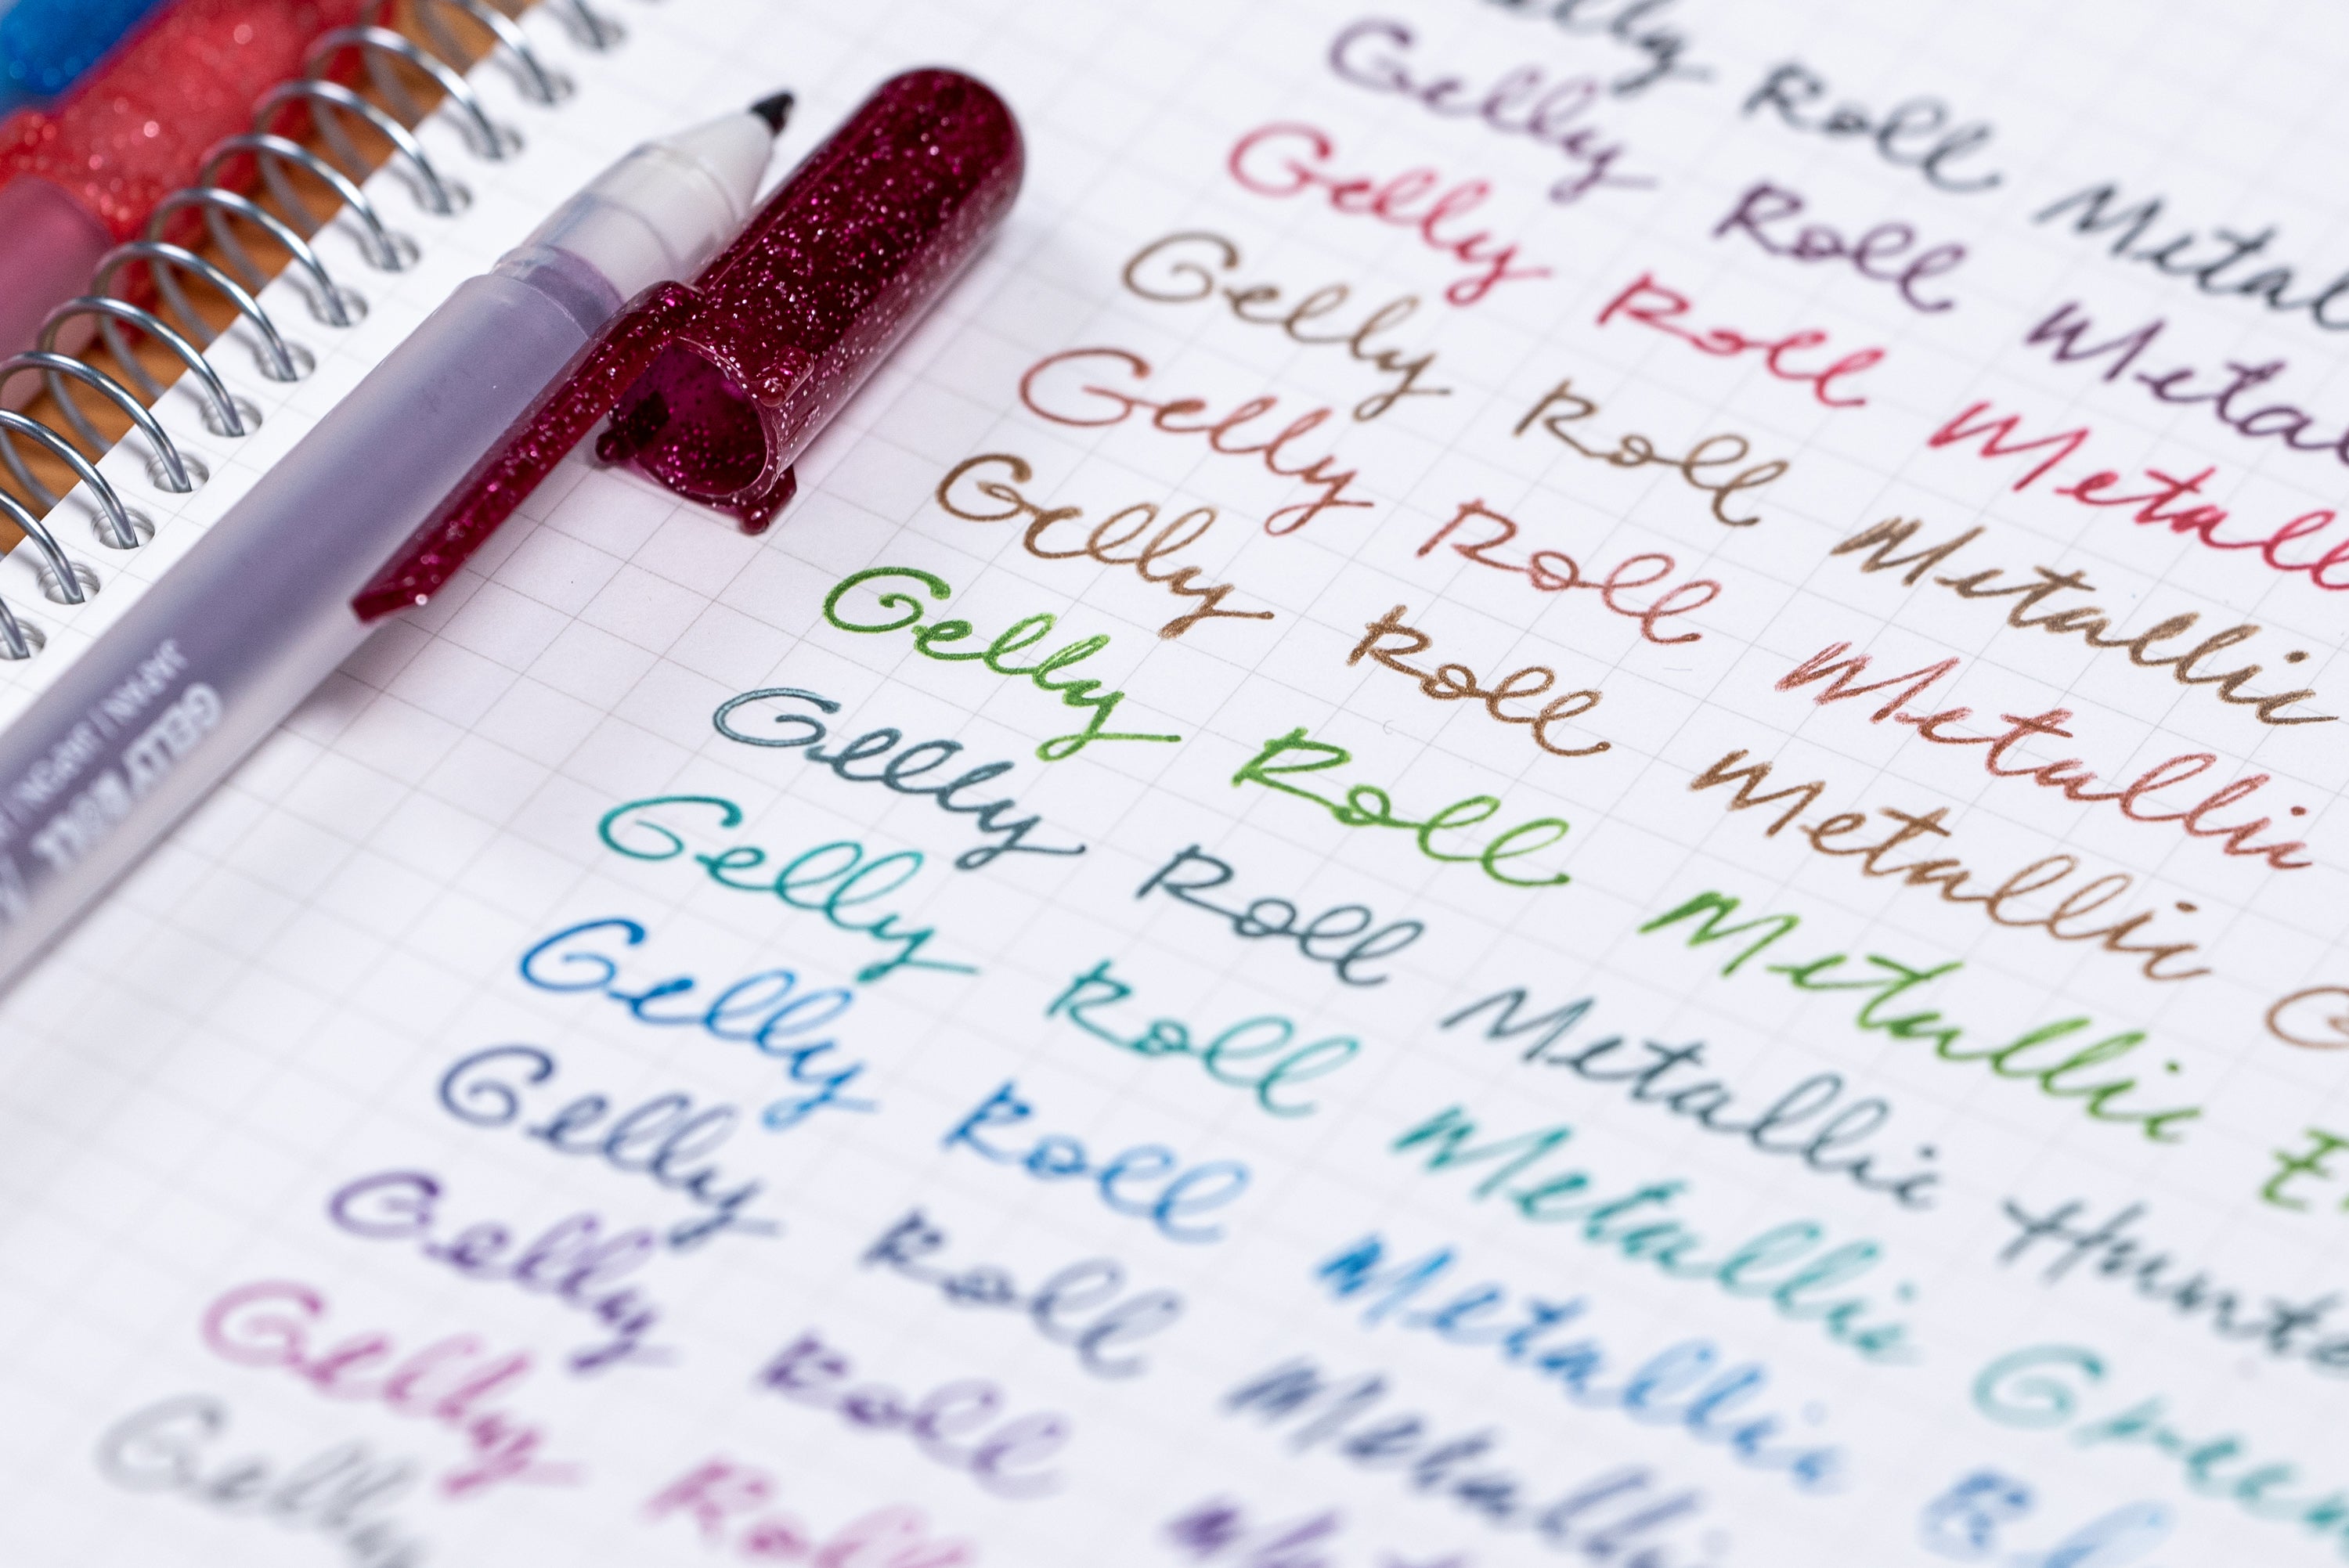 Roll Metal
Gelly Roll Metal
Gelly Roll Metall
Gelly Roll Metallic
Gelly Roll Metallic
Gelly Roll Metallic G
Gelly Roll Metallic E
Gelly Roll Metallic Hunte
Gelly Roll Metallic Green
Gelly Roll Metallic Bl
Gelly Roll Metallic
Gelly Roll
Gelly Roll
Gelly
GELLY ROLL
JAPAN / JAPON /